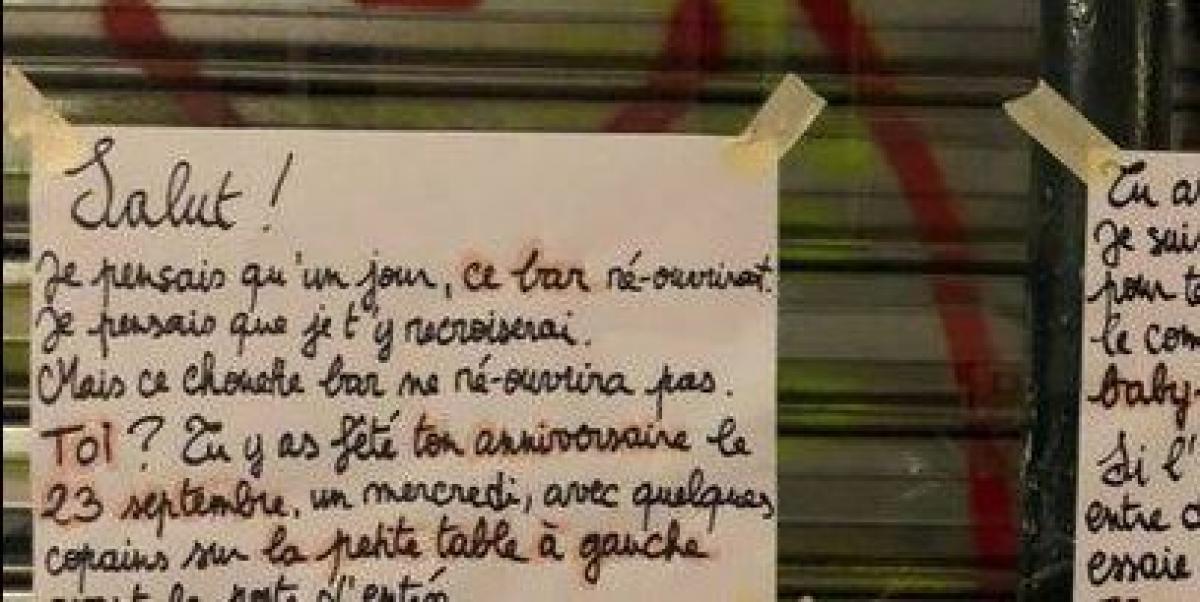 Salut !
Je pensais qu'un jour, ce bar ré-ouvrirait.
Je pensais que je t'y recroiserai.
Mais ce chouette bar ne ré-ouvrira pas.
Toi ? Tu y as fêté ton anniversaire le
23 septembre, un mercredi, avec quelques
copains sur la petite table à gauche
Tu a
Je suis
pour t
le com
baby-
Si l'
entre
essaie